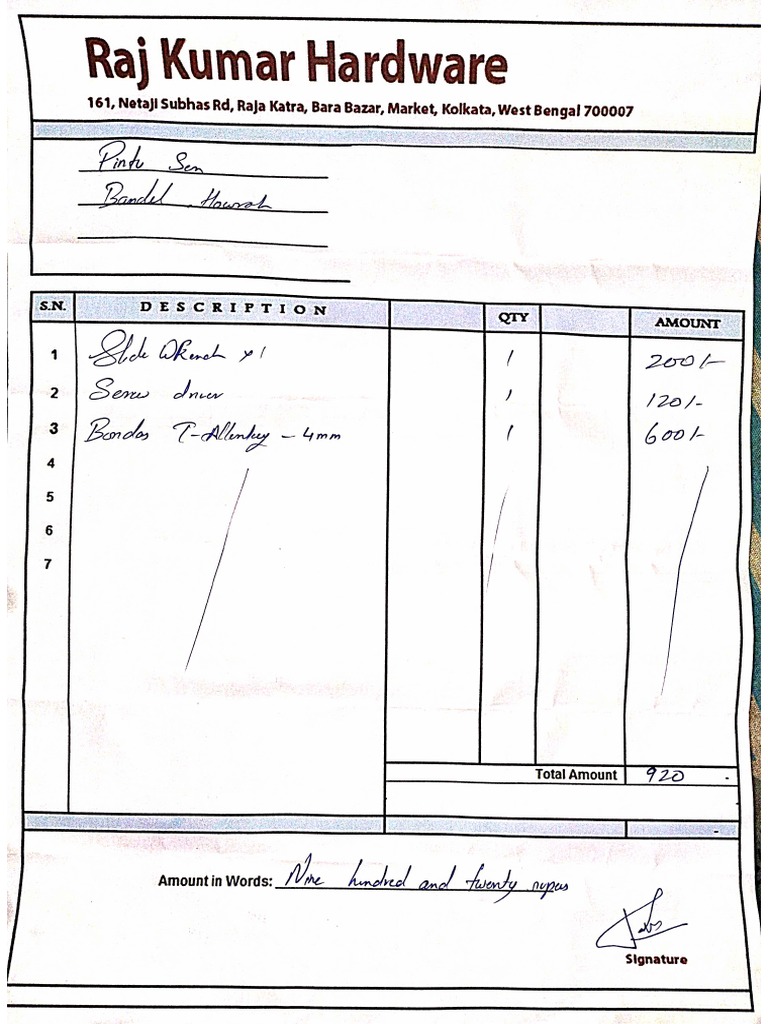 Raj Kumar Hardware
161, Netaji Subhas Rd, Raja Katra, Bara Bazar, Market, Kolkata, West Bengal 700007
Pintu Sen
Bandel, Howrah
S.N. DESCRIPTION QTY AMOUNT
1 Slide Wrench x1 1 200/-
2 Screw driver 1 120/-
3 T-Allenkey - 4mm 1 600/-
4
5
6
7
Total Amount 920 -
-
Amount in Words: Nine hundred and twenty rupes
Signature